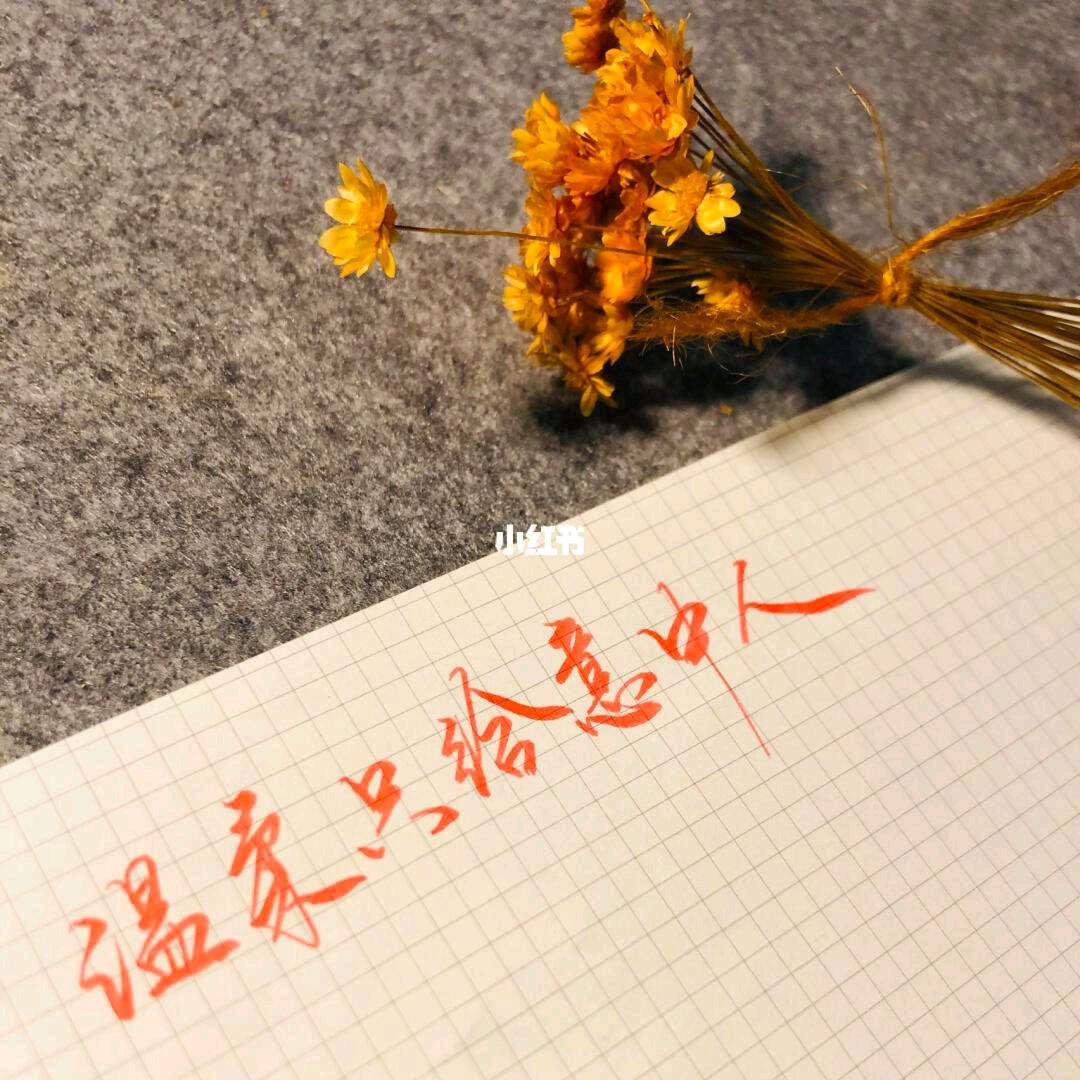 小红书
温柔只给意中人